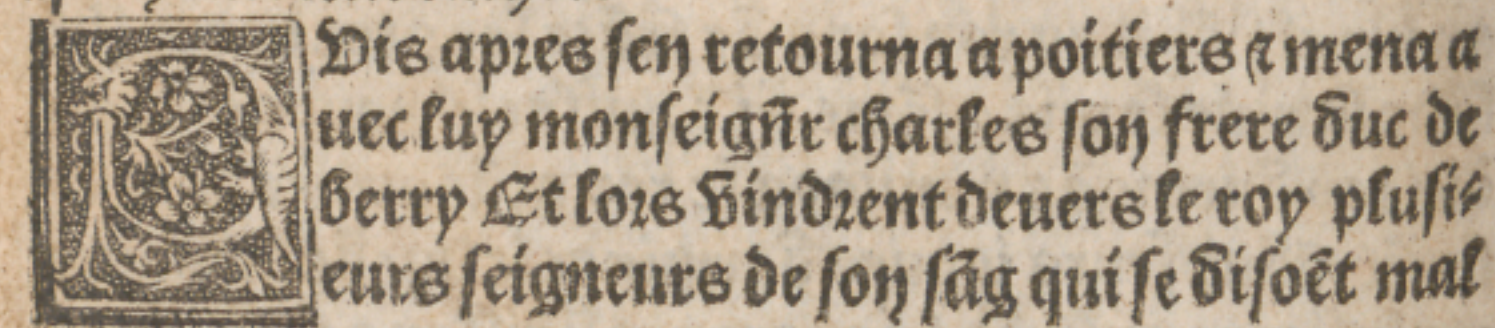 PVis apres sen retourna a poitiers ⁊ mena a
uec luy monseign̄r charles son frere duc de
berry Et lors vindrent deuers le roy plusi⸗
eurs seigneurs de son sãg qui se disoẽt mal